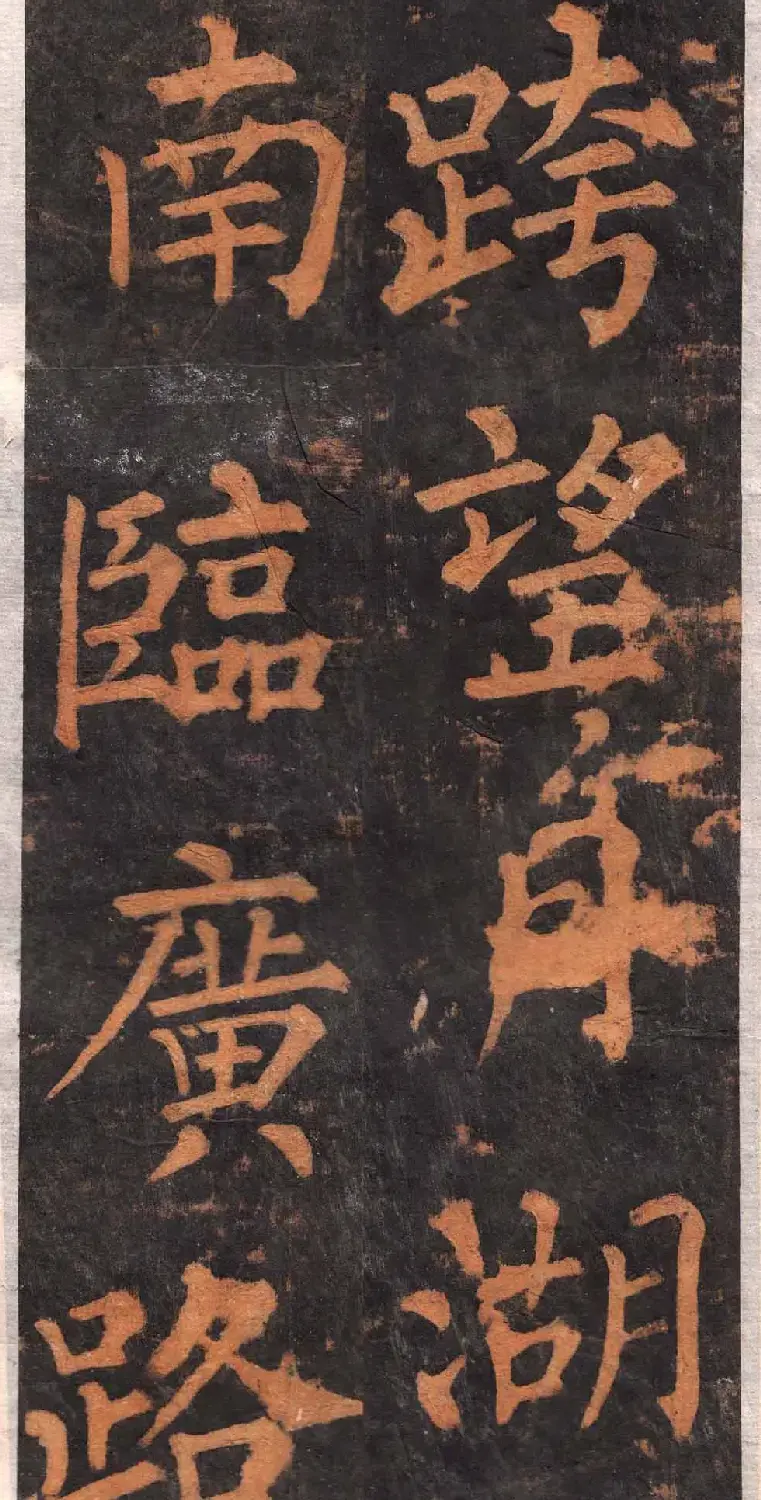 跨望湖
南臨廣路